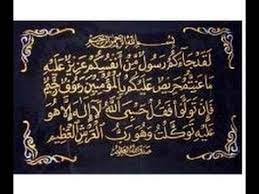 بسم الله الرحمن الرحيم
لَقَدْ جَاءَكُمْ رَسُولٌ مِنْ أَنْفُسِكُمْ عَزِيزٌ عَلَيْهِ
مَا عَنِتُّمْ حَرِيصٌ عَلَيْكُمْ بِالْمُؤْمِنِينَ رَءُوفٌ رَحِيمٌ
فَإِنْ تَوَلَّوْا فَقُلْ حَسْبِيَ اللَّهُ لَا إِلَهَ إِلَّا هُوَ
عَلَيْهِ تَوَكَّلْتُ وَهُوَ رَبُّ الْعَرْشِ الْعَظِيمِ
صدق الله العظيم